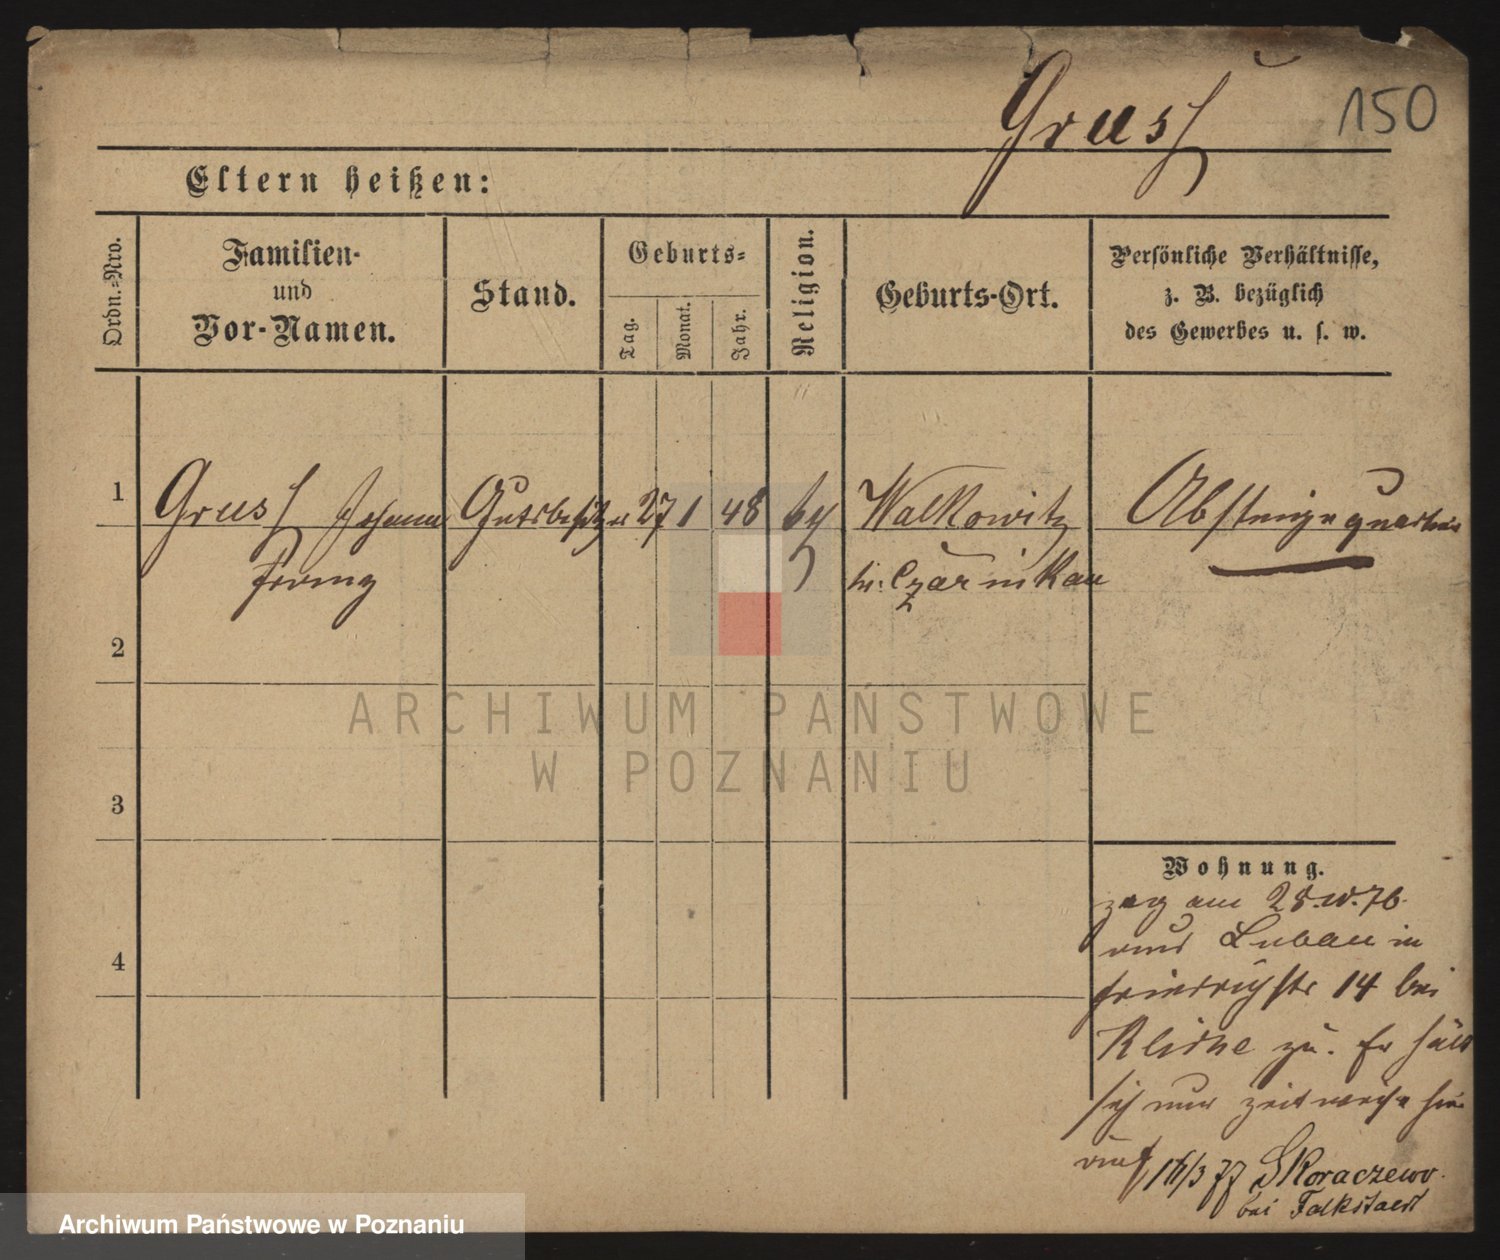 Gruss
150
Eltern heißen:
Ordn.-Nro.
Familien-
und
Vor-Namen.
Stand.
Geburts-
Tag.
Monat.
Jahr.
Religion.
Geburts-Ort.
Persönliche Verhältnisse,
z. B. bezüglich
des Gewerbes u. s. w.
1
Gruss Johann Gutsbesitzer 27 1 48 Walkowitz Absteigequartier
Franz
bei Czarnikau
2
ARCHIWUM PAŃSTWOWE
W POZNANIU
3
Wohnung.
zog am 28. 76.
aus Luban in
Friedrichstr 14 bei
zu. Er hält
sich nur zeitweise hier
auf
16/3 77 Skoraczewo
bei Falkstaedt
4
Archiwum Państwowe w Poznaniu